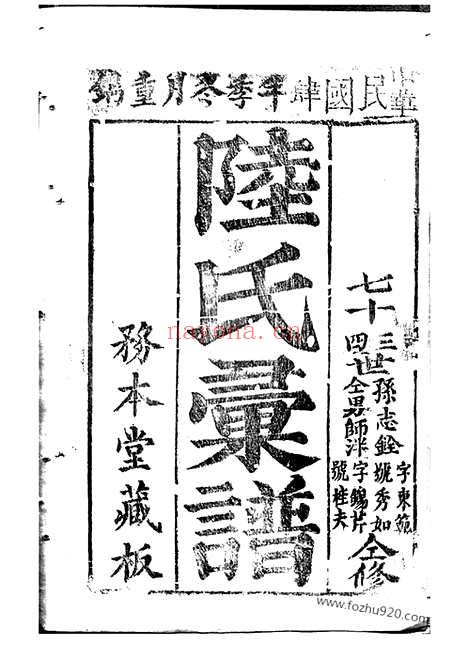 華民國肆年季冬月重鐫
七十三世孫志銓字東範號秀如
四世仝男師洋字錫芹號桂夫
仝修
陸氏彙譜
務本堂藏板
nayona.cn
www.fozhu920.com